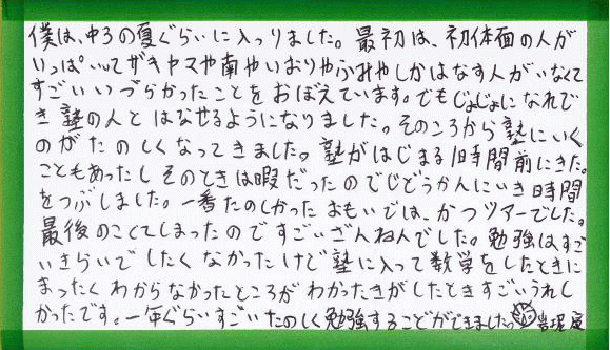 僕は、中3の夏ぐらいに入つりました。最初は、初体面の人が
いっぱいいてザキヤマや南やいおりやふみやしかはなす人がいなくて
すごいいづらかったことをおぼえています。でもじょじょになれで
き塾の人とはなせるようになりました。そのころから塾にいく
のがたのしくなってきました。塾がはじまる1時間前にきた。
こともあったしそのときは暇だったのでじどうかんにいき時間
をつぶしました。一番たのしかったおもいでは、かつツアーでした。
最後のこくてしまったのですごいざんねんでした。勉強はすご
いきらいでしたくなかったけど塾に入って数学をしたときに
まったくわからなかったところがわかったきがしたときすごいうれし
かったです。一年ぐらいすごいたのしく勉強することができました。